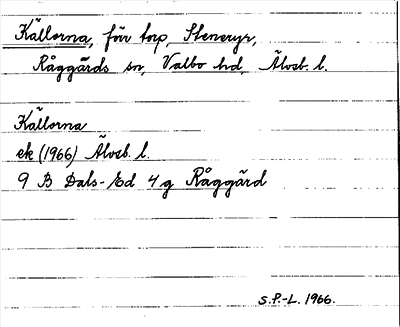 Källorna, förr torp, Steneryr,
Råggärds sn, Valbo hd, Älvsb. l.
Källorna
ek (1966) Älvsb. l.
9 B Dals-Ed 4 g Råggärd
S.P.-L. 1966.